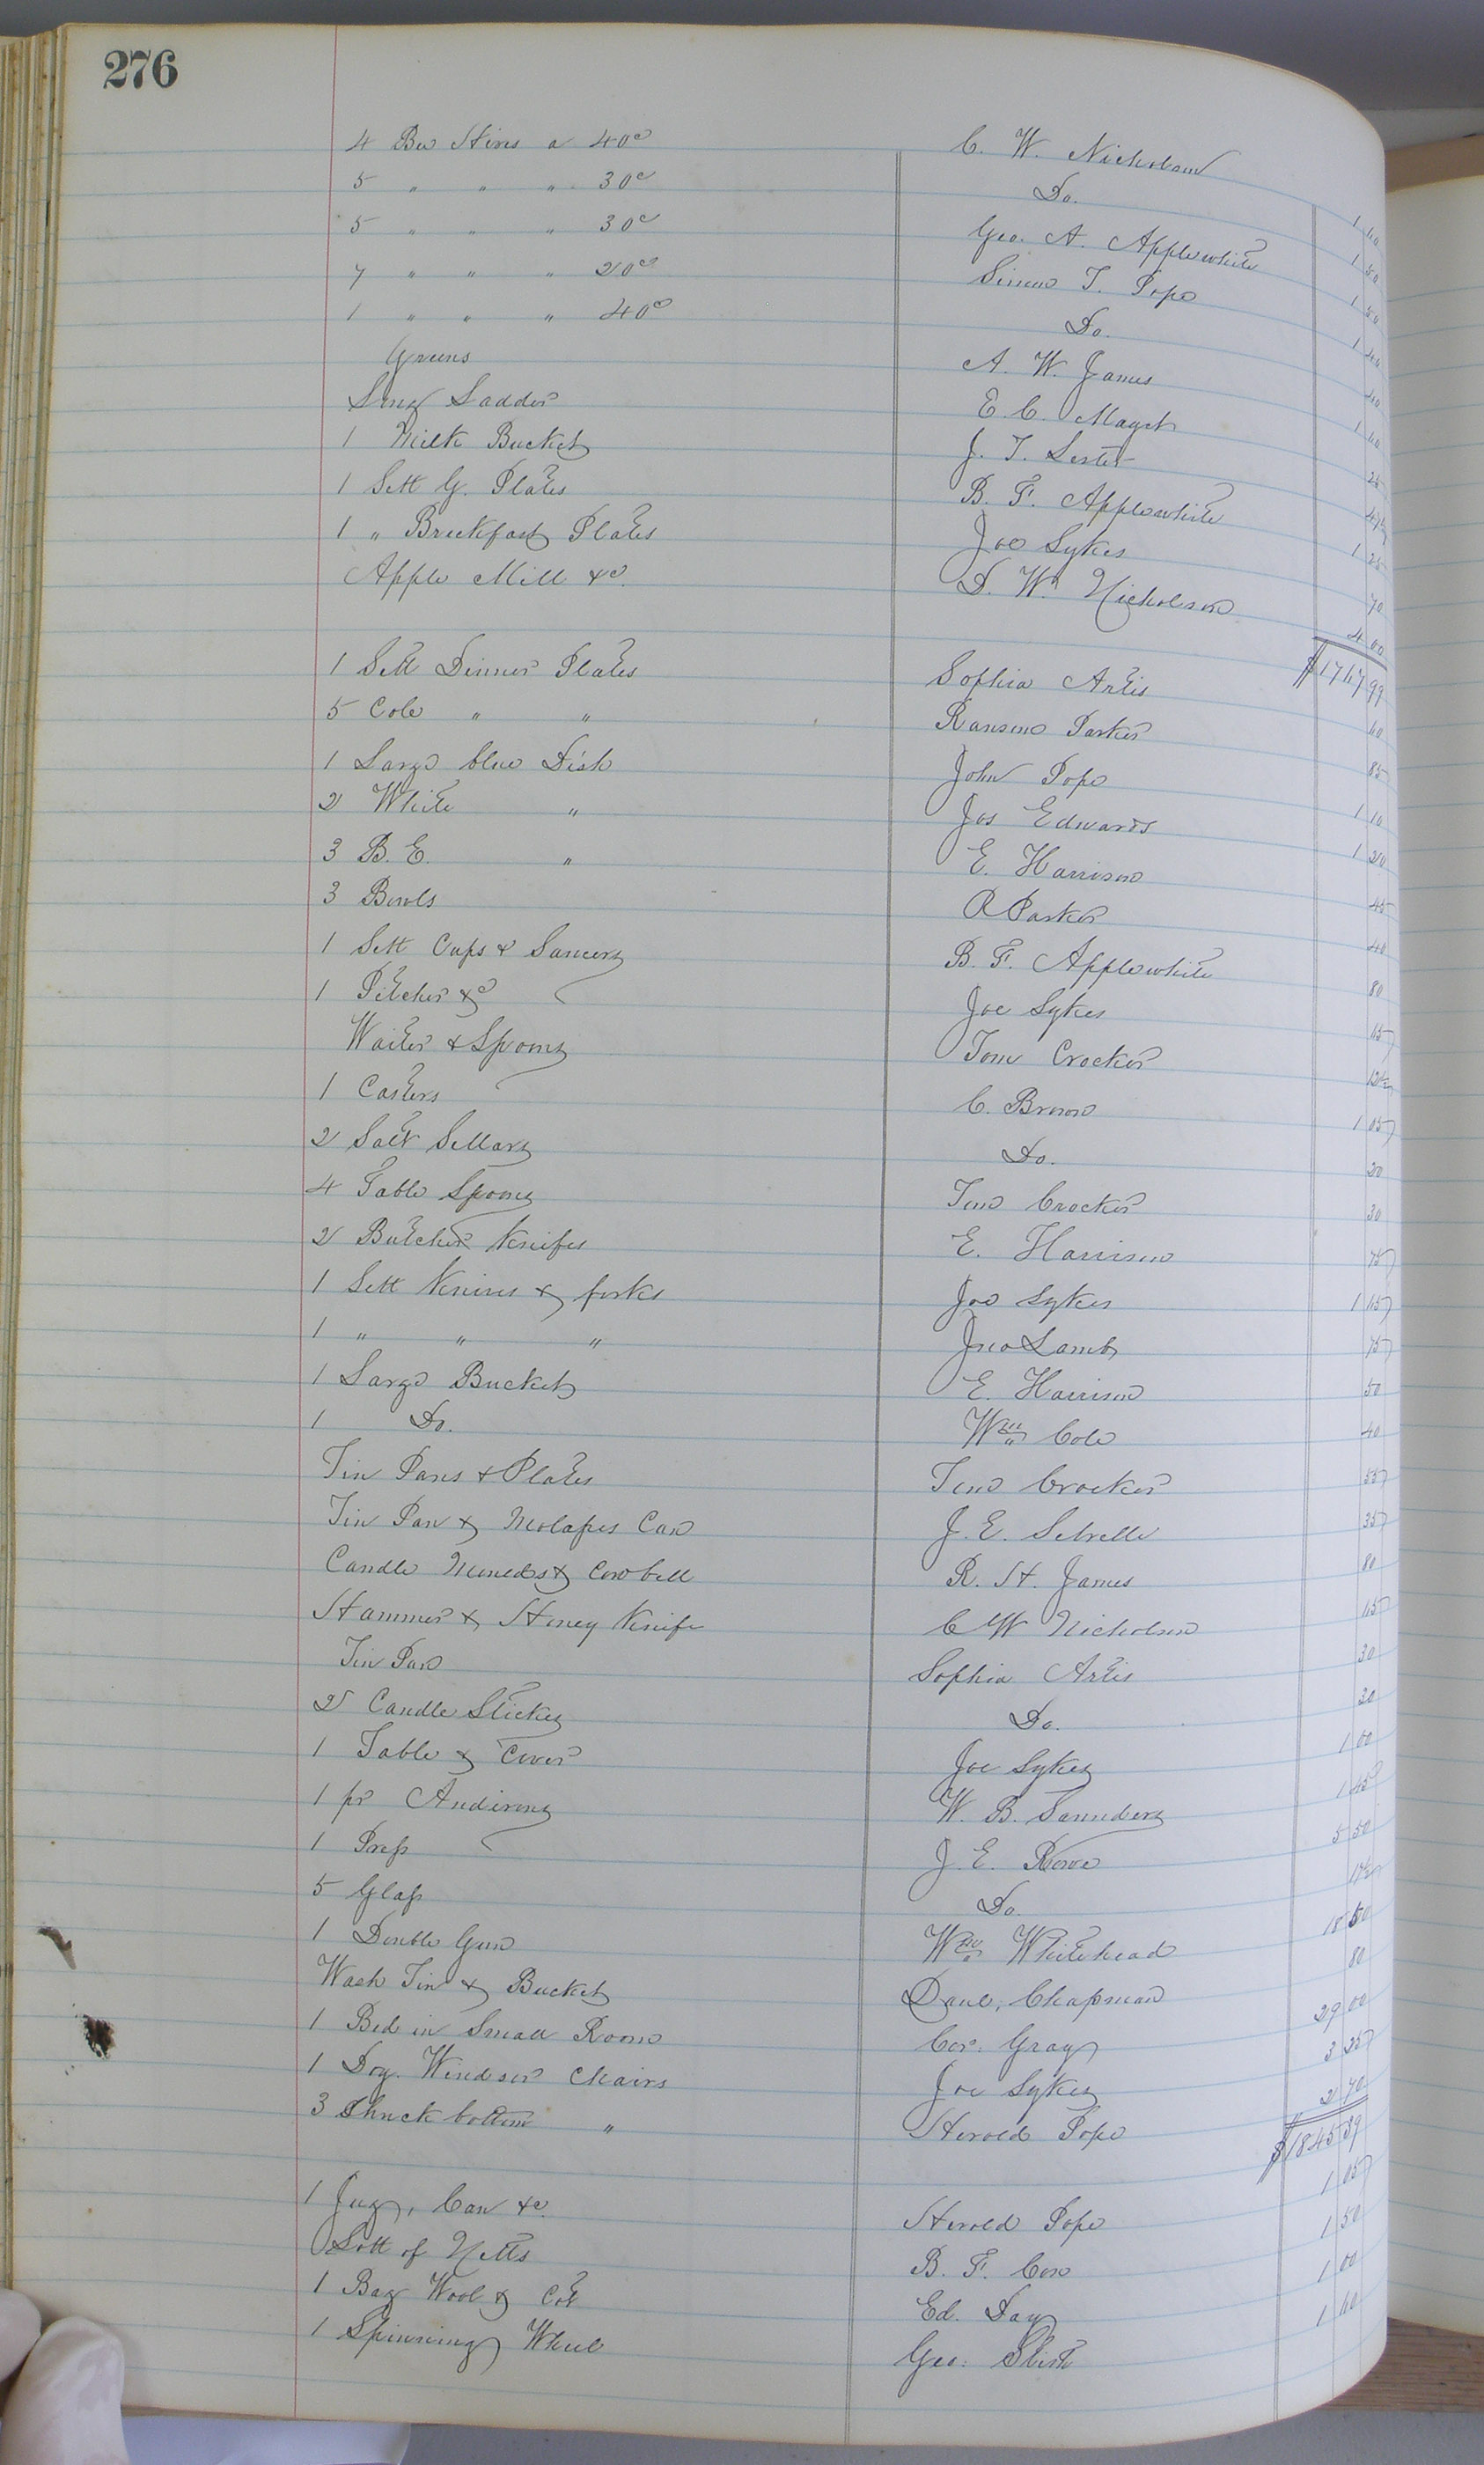 276
4 Bee Hives a 40c C. W. Nicholson 1 60
5 " " " 30c Do. 1 50
5 " " " 30c Geo. A. Applewhite 1 50
7 " " " 20c Simon T. Pope 1 40
1 " " " 40c Do. 40
Greens A. W. James 1 60
Long Ladder E. C. Maget 25
1 Milk Bucket J. T. Lester
1 Sett G. Plates B. F. Applewhite 1 25
1 " Breekfast Plates Joe Sykes 70
Apple Mill &c. D. W. Nicholson 4 00
$1767 99
1 Sett Dinner Plates Sophia Artis 60
5 Cole " " Ransom Parker 85
1 Large blue Dish John Pope 1 10
2 White " Jos Edwards 1 20
3 B. E. " E. Harrison 45
3 Bowls R Parker 40
1 Sett Cups & Saucers B. F. Applewhite 80
1 Pitcher &c Joe Sykes 65
Waiter & Spoons Tom Crocker 12½
1 Casters C. Brown 1 05
2 Salt Sellars Do. 20
4 Table Spoons Tom Crocker 30
2 Butcher Knifes E. Harrison 75
1 Sett Knives & forks Joe Sykes 1 65
1 " " " Jno Lamb 75
1 Large Bucket E. Harrison 50
1 Do. Wm Cole 40
Tin Pans & Plates Tom Crocker 55
Tin Pan & Molasses Can J. E. Sebrelle 35
Candle Moulds & Cow bell R. H. James 80
Hammer & Honey Knife C W Nicholson 65
Tin Pan Sophia Artis 30
2 Candle Sticks Do. 20
1 Table & Cover Joe Sykes 1 00
1 pr Andirons W. B. Saunders 1 45
1 Press J. E. Rowe 5 50
5 Glass Do. 12½
1 Double Gun Wm Whitehead 18 50
Wash Tin & Bucket Danl, Chapman 80
1 Bed in Small Room Cor. Gray 29 00
1 Doz. Windsor Chairs Joe Sykes 3 25
3 Shuck bottom " Herold Pope 2 70
$1845 39
1 Jug, Can &c. Herold Pope 1 05
Lott of Netts B. F. Cox 1 50
1 Bag Wool & Cot Ed. Day 1 00
1 Spinning Wheel Geo. Blish 1 60